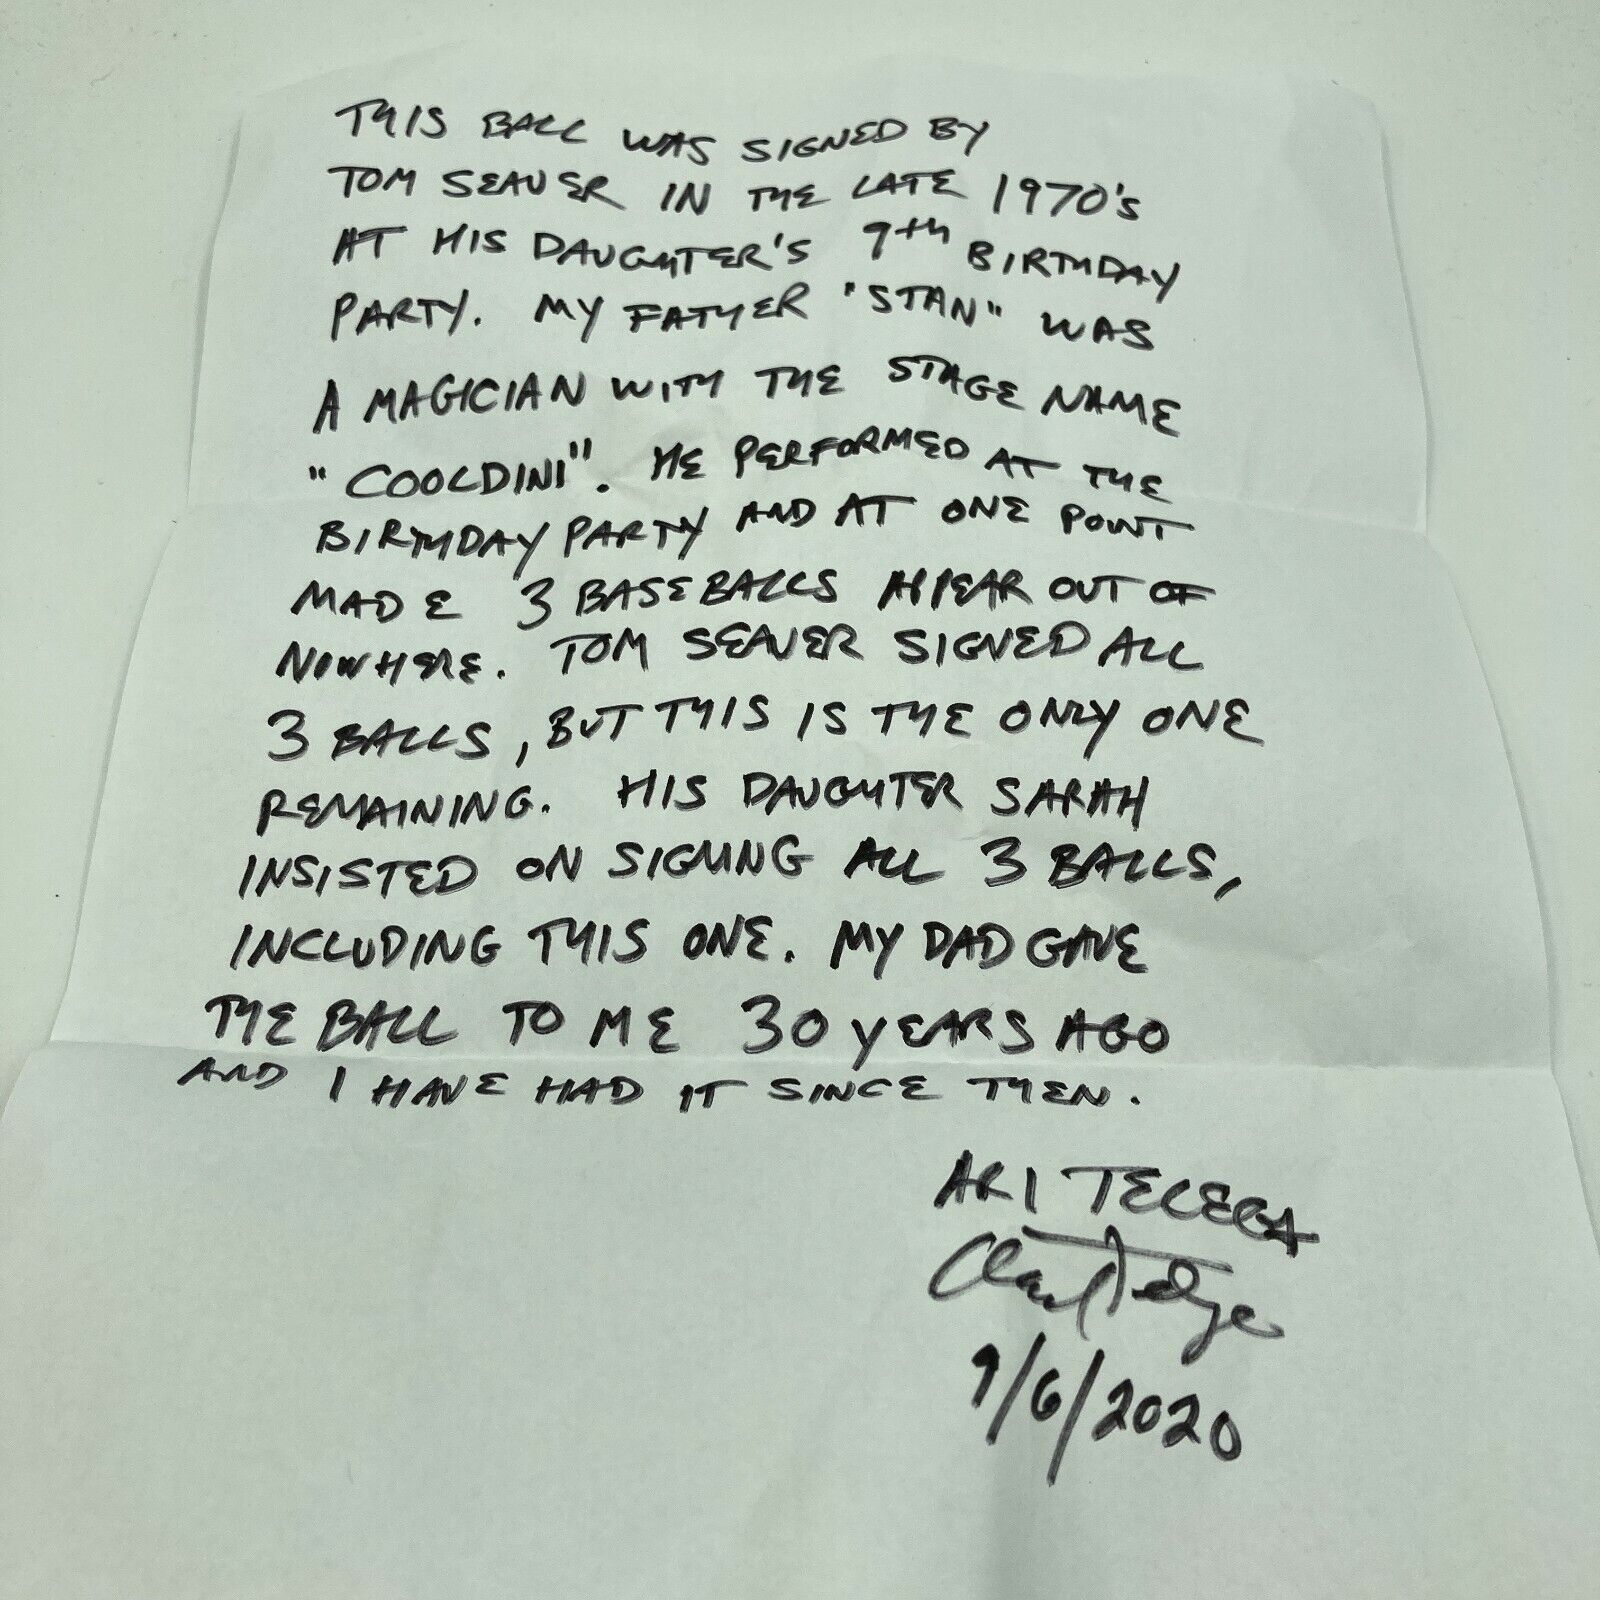 THIS BALL WAS SIGNED BY
TOM SEAVER IN THE LATE 1970's
AT HIS DAUGHTER'S 9th BIRTHDAY
PARTY. MY FATHER "STAN" WAS
A MAGICIAN WITH THE STAGE NAME
"COOLDINI". HE PERFORMED AT THE
BIRTHDAY PARTY AND AT ONE POINT
MADE 3 BASEBALLS APPEAR OUT OF
NOWHERE. TOM SEAVER SIGNED ALL
3 BALLS, BUT THIS IS THE ONLY ONE
REMAINING. HIS DAUGHTER SARAH
INSISTED ON SIGNING ALL 3 BALLS,
INCLUDING THIS ONE. MY DAD GAVE
THE BALL TO ME 30 YEARS AGO
AND I HAVE HAD IT SINCE THEN.
ARI
9/6/2020